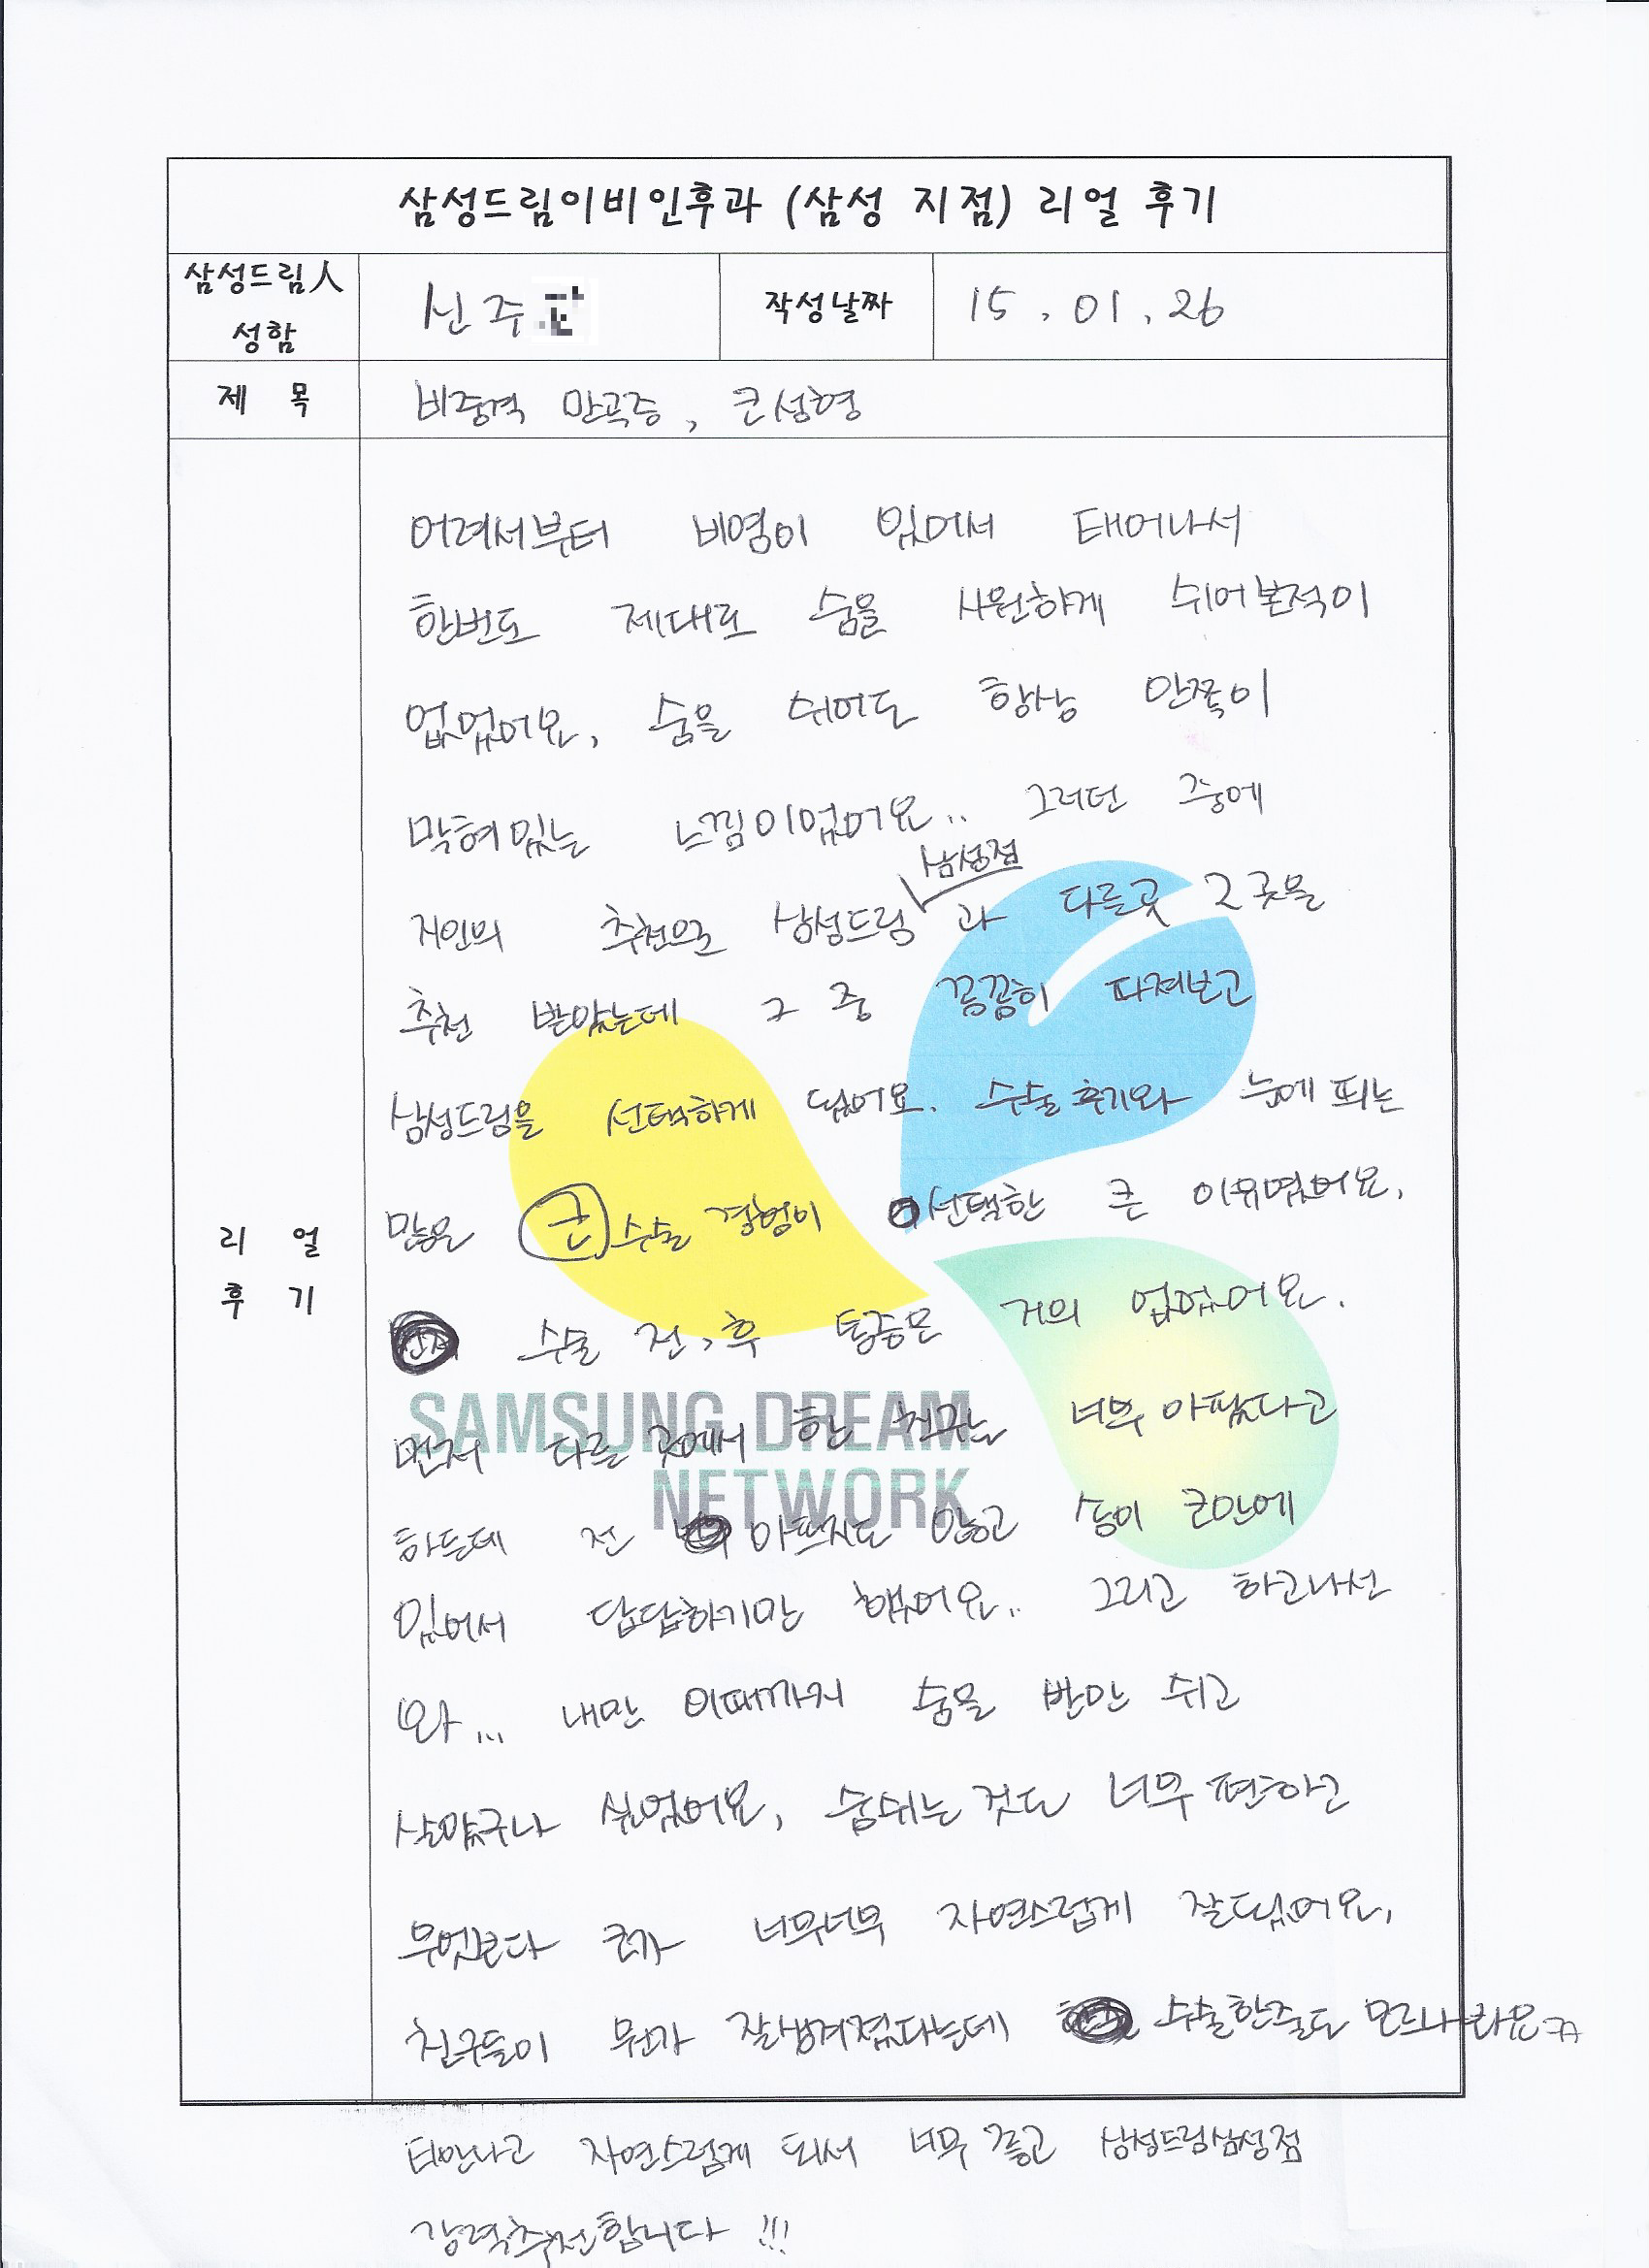 삼성드림이비인후과 (삼성 지점) 리얼 후기
삼성드림人 성함
신주
작성날짜
15. 01. 26
제 목
비중격 만곡증, 코성형
리 얼 후 기
어려서부터 비염이 있어서 태어나서
한번도 제대로 숨을 시원하게 쉬어본적이
없었어요, 숨을 쉬어도 항상 안쪽이
막혀있는 느낌이었어요.. 그러던 중에
지인의 추천으로 삼성드림 삼성점 과 다른곳 2곳을
추천 받았는데 그 중 꼼꼼히 따져보고
삼성드림을 선택하게 됐어요. 수술후기와 눈에 띄는
많은 코 수술 경험이 선택한 큰 이유였어요.
수술 전,후 통증은 거의 없었어요.
먼저 다른 곳에서 한 친구는 너무 아팠다고
하든데 전 아프지도 않고 솜이 코안에
있어서 답답하기만 했어요.. 그리고 하고나선
와... 내만 이때까지 숨을 반만 쉬고
살았구나 싶었어요, 숨쉬는 것도 너무 편하고
무엇보다 코가 너무너무 자연스럽게 잘됐어요,
친구들이 뭔가 잘생겨졌다는데 수술한줄도 모르나라요ㅋㅋ
티안나고 자연스럽게 되서 너무 좋고 삼성드림삼성점
강력추천합니다 !!!
SAMSUNG DREAM
NETWORK